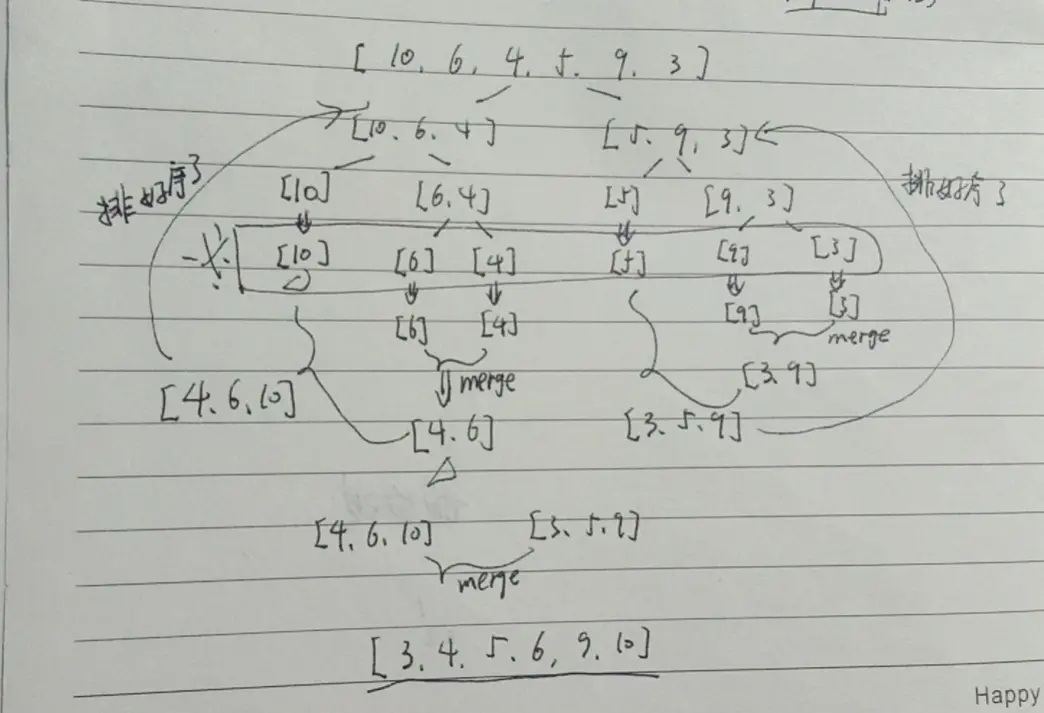 [ 10, 6, 4, 5, 9, 3 ]
[10、6、4] [5、9, 3]
排好序了 [10] [6,4] [5] [9, 3] 排好序了
[10] [6] [4] [5] [9] [3]
[6] [4] [9] [3]
merge
merge [3,9]
[4、6、10] [4、6] [3、5、9]
[4、6、10] [3、5、9]
merge
[3、4、5、6, 9、10]
Happy